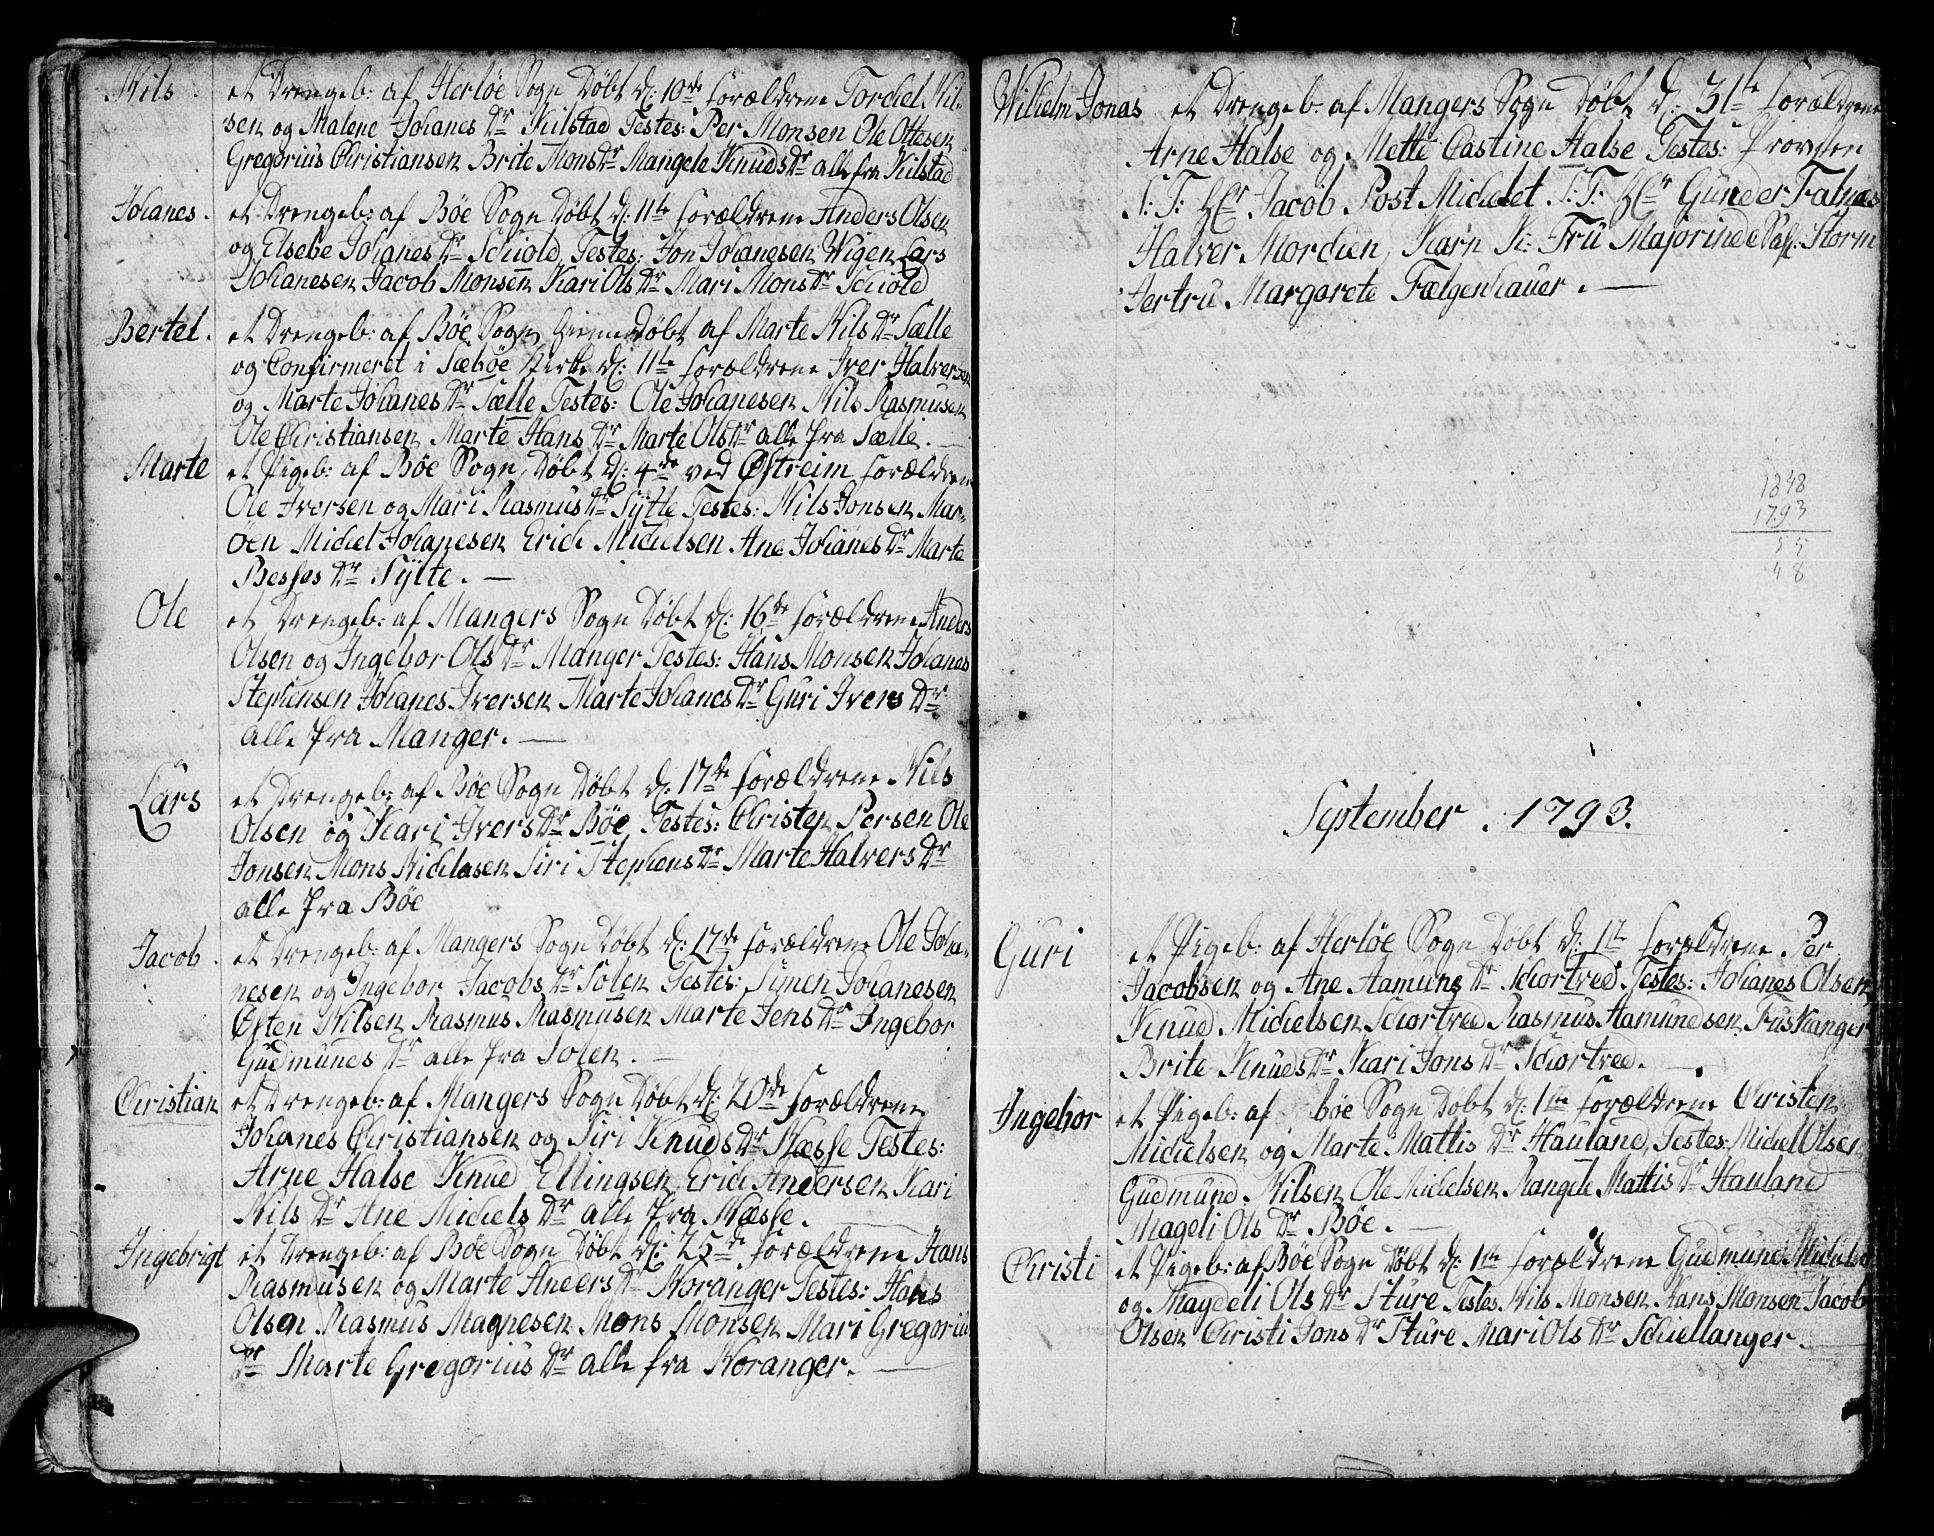 Nils. et Drengeb: af Herløe Sogn Døbt d: 10de forældrene Torchel Nil-
sen og Malene Johanes Dr Kilstad Testes: Per Monsen Ole Ottesen
Gregorius Christiansen Brite Mons Dr Mangele Knuds Dr alle fra Kilstad
Johanes. et Drengeb: af Bøe Sogn Døbt d: 11te forældrene Anders Olsen
og Elsebe Johanes Dr Schiold Testes: Jon Johanesen Wigen Lars
Johanesen Jacob Monsen Kari Ols Dr Mari Mons Dr Schiold
Bertel. et Drengeb: af Bøe Sogn hiemedøbt af Marte Nils Dr Sælle
og Confirmeret i Sæbøe Kirke d: 11te forældrene Iver Halversen
og Marte Johanes Dr Sælle Testes: Ole Johanesen Nils Rasmusen
Ole Christiansen Marte Hans Dr Marte Ols Dr alle fra Sælle.
Marte et Pigeb: af Bøe Sogn Døbt d: 4de ved Østreim forældrene
Ole Iversen og Mari Rasmus Dr Sylte Testes: Nils Jonsen Mar-
øen Michel Johanesen Erich Michelsen Ane Johanes Dr Marte
Besses Dr Sylte.
Ole et Drengeb: af Mangers Sogn Døbt d: 16de forældrene Anders
Olsen og Ingebor Ols Dr Manger Testes: Hans Monsen Johanes
Stephensen Johanes Iversen Marte Johanes Dr Guri Ivers Dr
alle fra Manger.
Lars et Drengeb: af Bøe Sogn Døbt d: 17de forældrene Nils
Olsen og Kari Ivers Dr Bøe Testes: Christen Persen Ole
Jonsen Mons Nichlasen Siri Stephens Dr Marte Halvers Dr
alle fra Bøe
Jacob. et Drengeb: af Mangers Sogn Døbt d: 17de forældrene Ole Joha-
nesen og Ingebor Jacobs Dr Solen Testes: Simen Johanesen
Østen Nilsen Rasmus Rasmusen Marte Jens Dr Ingebor
Gudmunds Dr alle fra Solen.
Christian et Drengeb: af Mangers Sogn Døbt d: 20de forældrene
Johanes Christiansen og Siri Knuds Dr Næsse Testes:
Arne Halse Knud Ellingsen Erich Andersen Kari
Nils Dr Ane Michels Dr alle fra Næsse.
Ingebrigt et Drengeb: af Bøe Sogn Døbt d: 25de forældrene Hans
Rasmusen og Marte Aneers Dr Noranger Testes: Hans
Olsen Rasmus Magnesen Mons Monsen Mari Gregorius
Dr Marte Gregorius Dr alle fra Noranger.
Wilhelm Jonas et Drengeb: af Mangers Sogn Døbt d: 31te forældrene
Arne Halse og Mette Castine Halse Testes: Provsten
S: T: Hr Jacob Post Michelet S: T: Hr Gunder Falnes
Halver Mordien, Karn K: Fru Majorinde Storm
Jertru Margarete Fælgenhauer.
1848
1793
55
48
September. 1793.
Guri et Pigeb: af Herløe Sogn Døbt d: 1te forældrene Per
Jacobsen og Ane Aamuns Dr Schortved Testes: Johanes Olsen
Knud Michelsen Schortved Rasmus Aamundsen Fuskanger
Brite Knuds Dr Kari Jons Dr Schortved.
Ingebor et Pigeb: af bøe Sogn Døbt d: 1te forældrene Christen
Michelsen og Marte Mattis Dr Hauland, Testes: Michel Olsen
Gudmund Nilsen Ole Michelsen Rangele Mattis Dr Hauland
Mageli Ols Dr Bøe.
Christi et Pigeb: af Bøe Sogn Døbt d: 1te forældrene Gudmund Michelsen
og Magdeli Ols Dr Sture Testes Nils Monsen Hans Monsen Jacob
Olsen Christi Jons Dr Sture Mari Ols Dr Schiellanger.